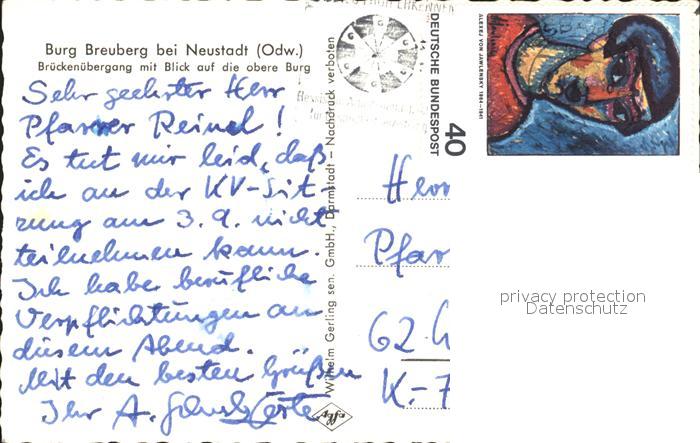 Burg Breuberg bei Neustadt (Odw.)
Brückenübergang mit Blick auf die obere Burg
Sehr geehrter Herr
Pfarrer Reinel!
Es tut mir leid, daß
ich an der KV-Sit-
zung am 3. 9. nicht
teilnehmen kann.
Ich habe berufliche
Verpflichtungen an
diesem Abend.
Mit den besten Grüßen
Ihr A.
Wilhelm Gerling sen. GmbH., Darmstadt – Nachdruck verboten
Agfa
DEUTSCHE BUNDESPOST
40
ALEXEJ VON JAWLENSKY 1864-1941
Herr
Pfarr
62
K.-7
privacy protection
Datenschutz